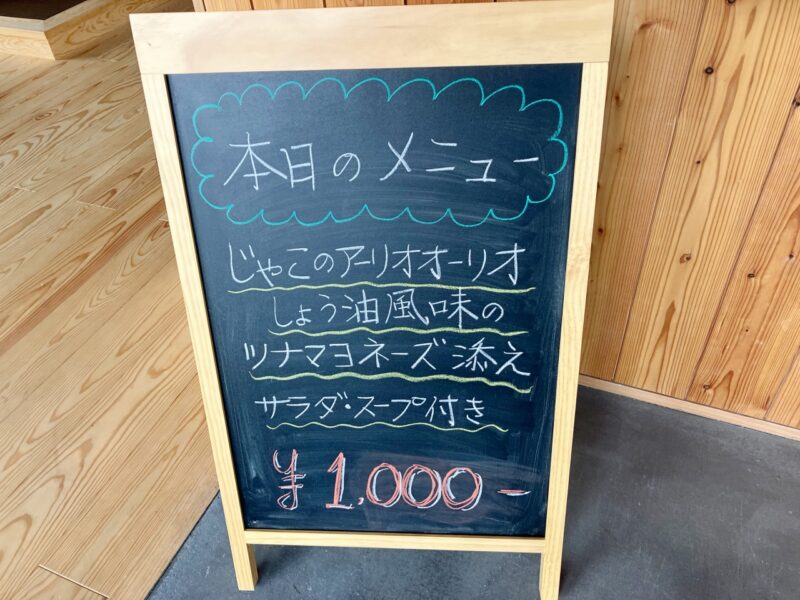 本日のメニュー
じゃこのアーリオオーリオ
しょう油風味の
ツナマヨネーズ添え
サラダ・スープ付き
¥1,000-